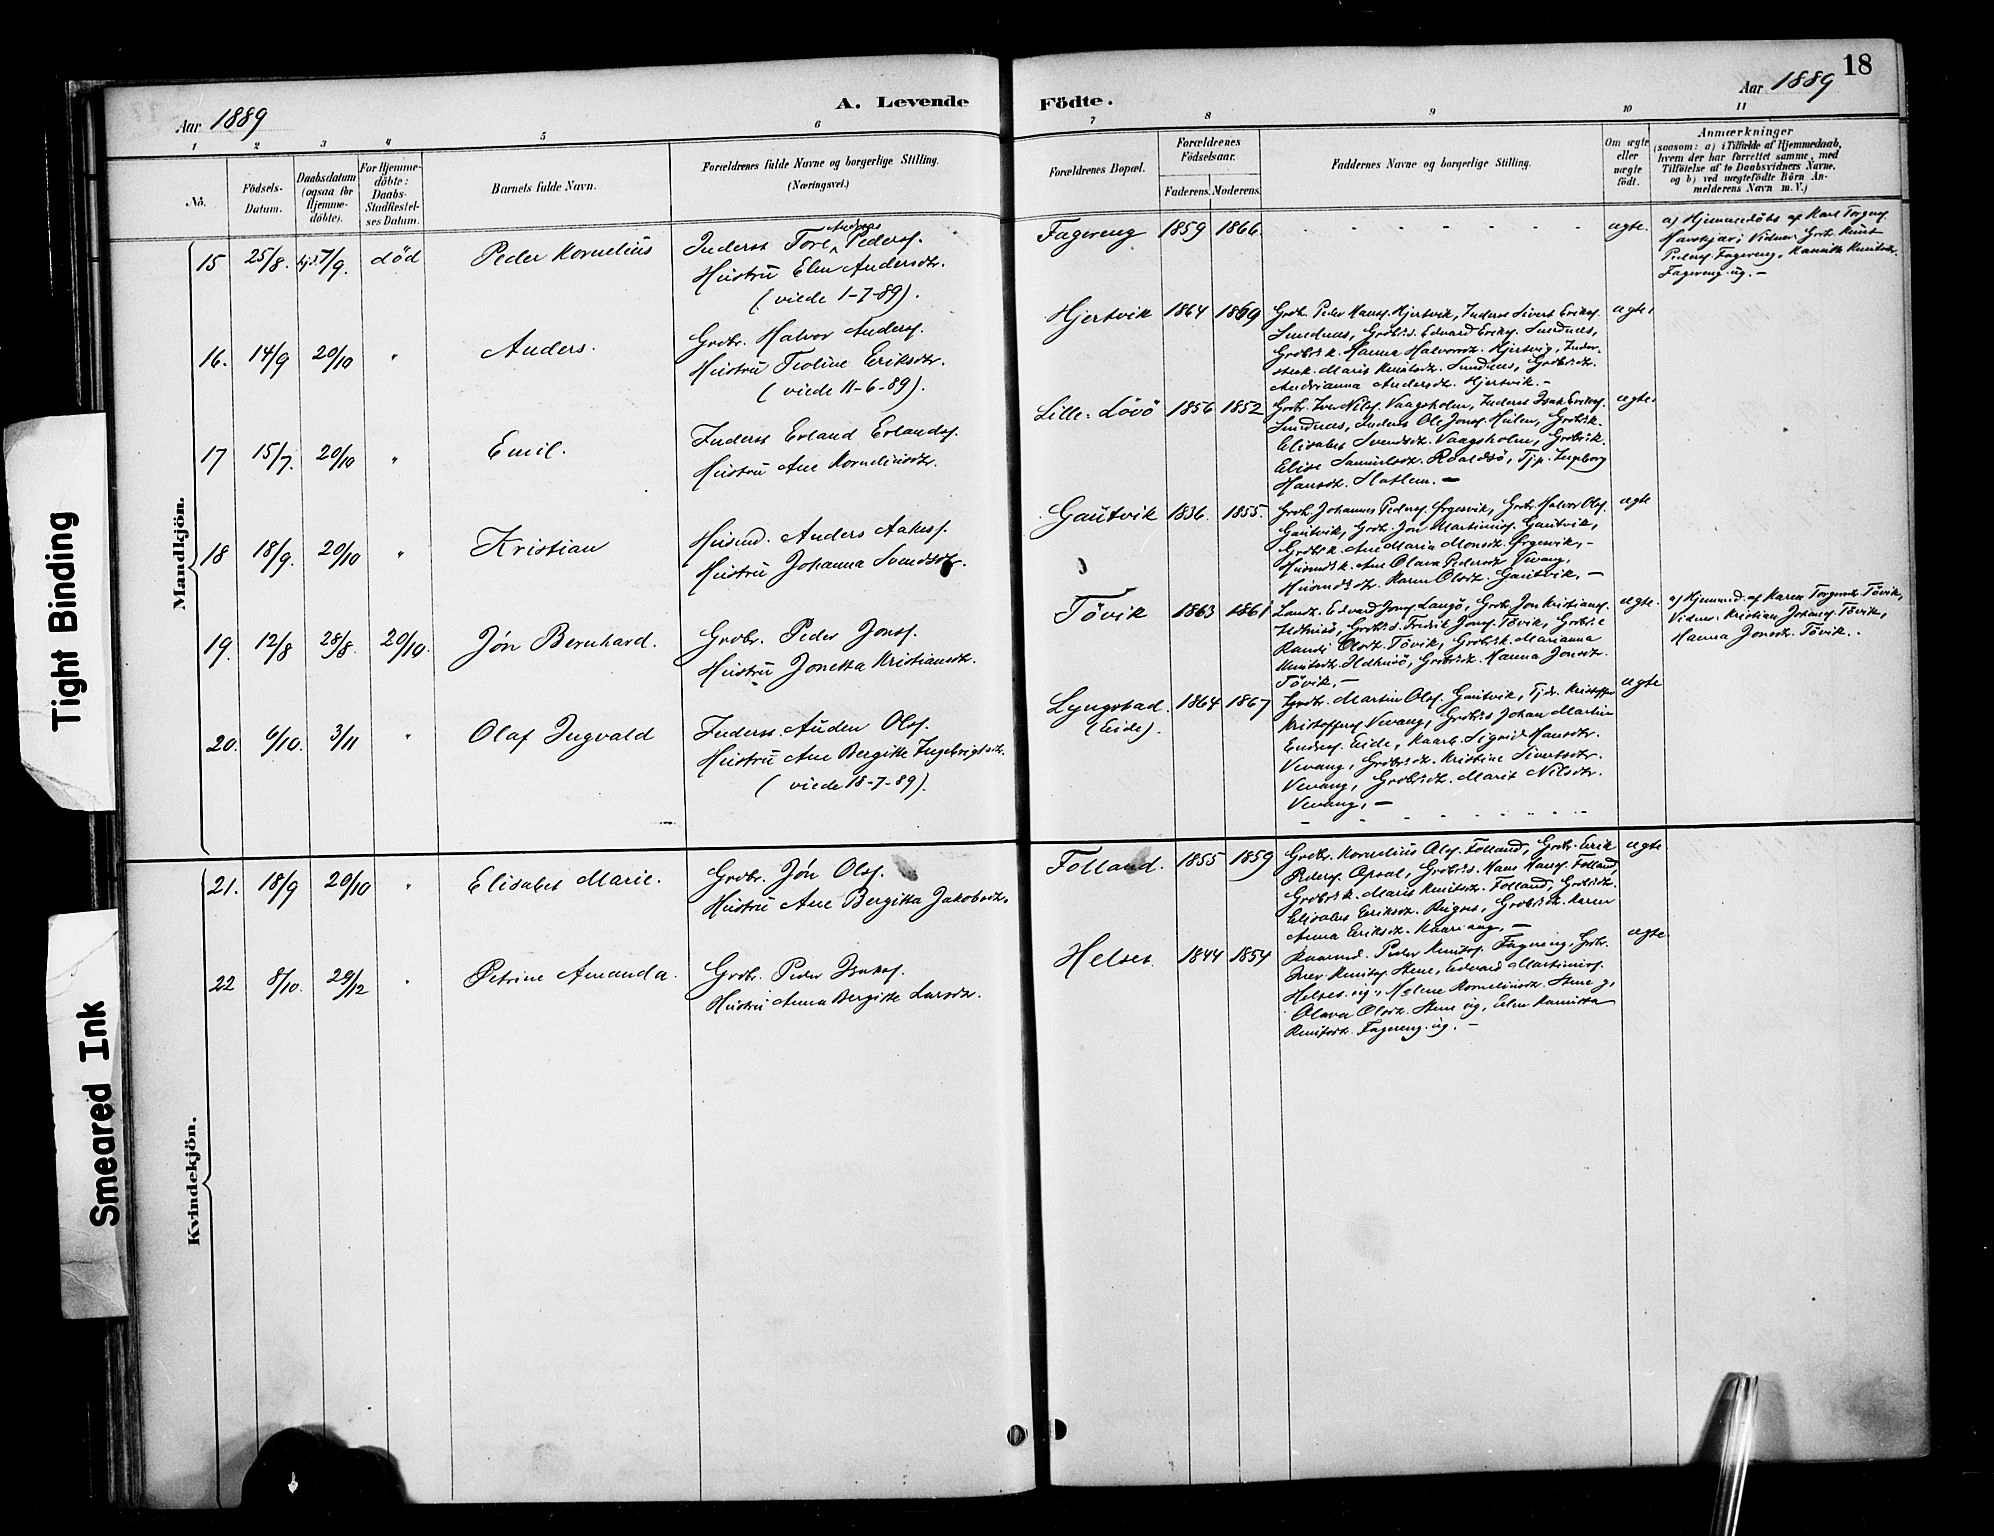 18
Aar 1889
A. Levende Födte.
Aar 1889
1 2 3 4 5 6 7 8 9 10 11
Nö.
Födsels-
Datum.
Daabsdatum
(ogsaa for
Hjemme-
döbte).
For Hjemme-
döbte:
Daabs-
Stadfæstel-
ses Datum.
Barnets fulde Navn.
Forældrenes fulde Navne og borgerlige Stilling.
(Næringsvei.)
Forældrenes Bopæl.
Forældrenes
Födselsaar.
Faderens. Moderens.
Faddernes Navne og borgerlige Stilling.
Om ægte
eller
uægte
födt.
Anmærkninger
(saasom: a) i Tilfælde af Hjemmedaab,
hvem der har forrettet samme, med
Tilföielse af to Daabsvidners Navne,
og b) ved uægtefödte Börn An-
melderens Navn m. V.)
Mandkjön.
15 25/8. hjd. 7/9. död Peder Kornelius
Inderst Tore Andreas Peders.
Hustru Elen Andersdtr.
(viede 1-7-89).
Fagereng 1859 1866. ægte.
a) Hjemmedöbt af Karl Torgers.
Havskjær; Vidner: Grbr. Knut
Peders. Fagereng, Kannitte Knutsdtr.
Fagereng ug. –
16. 14/9 20/10 " Anders.
Grdbr. Halvor Anders.
Hustru Teoline Eriksdtr.
(viede 11-6-89).
Hjertvik 1864 1869 ægte.
Grdbr. Peder Hans. Hjertvik, Inderst Sivert Eriks.
Sundnes, Grdbrs. Edvard Eriks. Sundnes,
Grdbrsk. Hanna Halvorsdtr. Hjertvig, Inder-
stesk. Marit Knutsdtr. Sundnes, Grdbrsdtr.
Andrianna Andersdtr. Hjertvik. –
17 15/7. 20/10 " Emil.
Inderst Erland Erlands.
Hustru Ane Kornelinsdtr.
Lille-Lövö 1856 1852 ægte.
Grdbr. Iver Nils. Vaagsholm, Inderst Isak Eriks.
Sundnes, Inderst Ole Jons. Hulen, Grdbrsk.
Elisabet Svendsdtr. Vaagsholm, Grdbrsk.
Elise Samuelsdtr. Roaldsö, Tjp. Ingeborg
Hansdtr. Slatlem. –
18 18/9. 20/10 " Kristian
Husmd. Anders Aakes.
Hustru Johanna Svendsdtr.
Gautvik 1836. 1855. ægte
Grdbr. Johannes Peders. Ørgesvik, Grdbr. Halvor Ols.
Gautvik, Grdbr. Jon Martinus. Gautvik,
Grdbrsk. Ane Maria Monsdtr. Ørgesvik, –
Husmdsk. Ane Olava Pedersdtr. Vevang,
Husmdsdtr. Karen Olsdtr. Gautvik, –
19. 12/8 28/8. 20/10. Jön Bernhard.
Grdbr. Peder Jons.
Hustru Jonetta Kristiansdtr.
Tövik 1863 1861 ægte.
Landh. Edvard Jons. Langö, Grdbr. Jon Kristians.
Ildhusö, Grdbrs. Fredrik Jons. Tövik, Grdbrsk
Randi Olsdtr. Tövik, Grdbrsk. Marianna
Knutsdtr. Ildhusö, Grdbrsdtr. Hanna Jonsdtr.
Tövik. –
a) Hjemmed. af Karen Torgersdtr. Tövik,
Vidner: Kristian Johans. Tövik,
Hanna Jonsdtr. Tövik.
20. 6/10. 3/11 " Olaf Ingvald
Inderst Auden Ols.
Hustru Ane Bergitte Ingebrigtsdtr.
(viede 18-7-89).
Lyngstad.
(Eide).
1864 1867 ægte
Grdbr. Martin Ols. Gautvik, Tjdr. Kristoffer
Kristoffers. Vevang, Grdbrs. Johan Martin
Enders. Eide, Kaark. Sigrid Hansdtr.
Vevang, Grdbrsdtr. Kristine Sivertsdtr.
Vevang, Grdbrsdtr. Marit Nilsdtr.
Vevang, –
Kvindekjön.
21. 18/9 20/10 " Elisabet Marie.
Grdbr. Jön Ols.
Hustru Ane Bergitta Jakobsdtr.
Folland. 1855 1859 ægte.
Grdbr. Kornelius Ols. Folland, Grdbr. Erik
Peders. Opsal, Grdbrs. Hans Hans. Folland,
Grdbrsk. Marit Knutsdtr. Folland, Grdbrsdtr.
Elisabet Eriksdtr. Grdbrsdtr. Karen
Anna Eriksdtr. –
22 8/10. 29/12 " Petrine Amanda.
Grdbr. Peder Isaks.
Hustru Anna Bergitte Larsdtr.
Helset 1844 1854 ægte
Kaarmd. Peder Knuts. Fagereng, Grdbr.
Iver Knuts. Stene, Edvard Martinus.
Helset ug., Malene Kornelinsdtr. Stene g,
Olava Olsdtr. Stene ug, Elen Kannitta
Knutsdtr. Fagereng ug. –
Tight Binding
Smeared Ink